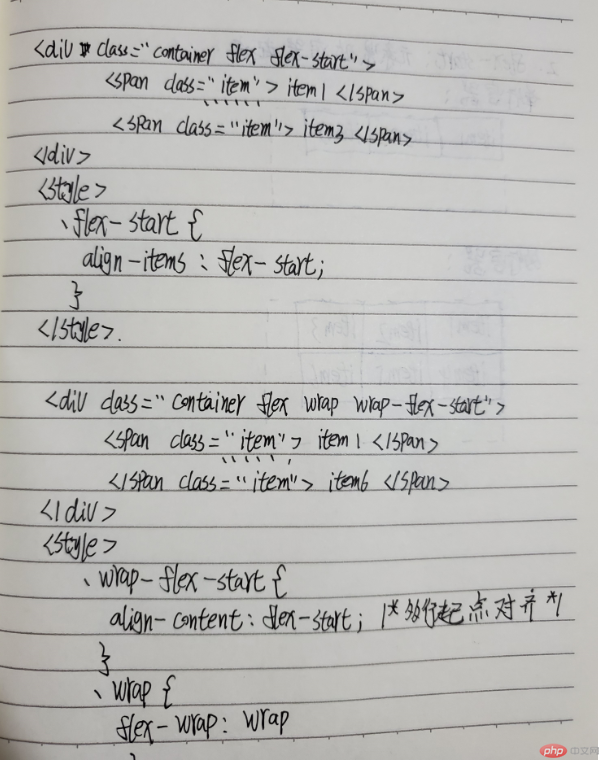 <div class="container flex flex-start">
<span class="item"> item1 </span>
......
<span class="item"> item3 </span>
</div>
<style>
.flex-start {
align-items : flex-start;
}
</style>.
<div class="container flex wrap wrap-flex-start">
<span class="item"> item1 </span>
......
</span class="item"> item6 </span>
</div>
<style>
.wrap-flex-start {
align-content: flex-start; /* 多行起点对齐 */
}
.wrap {
flex-wrap: wrap
}
php 中文网